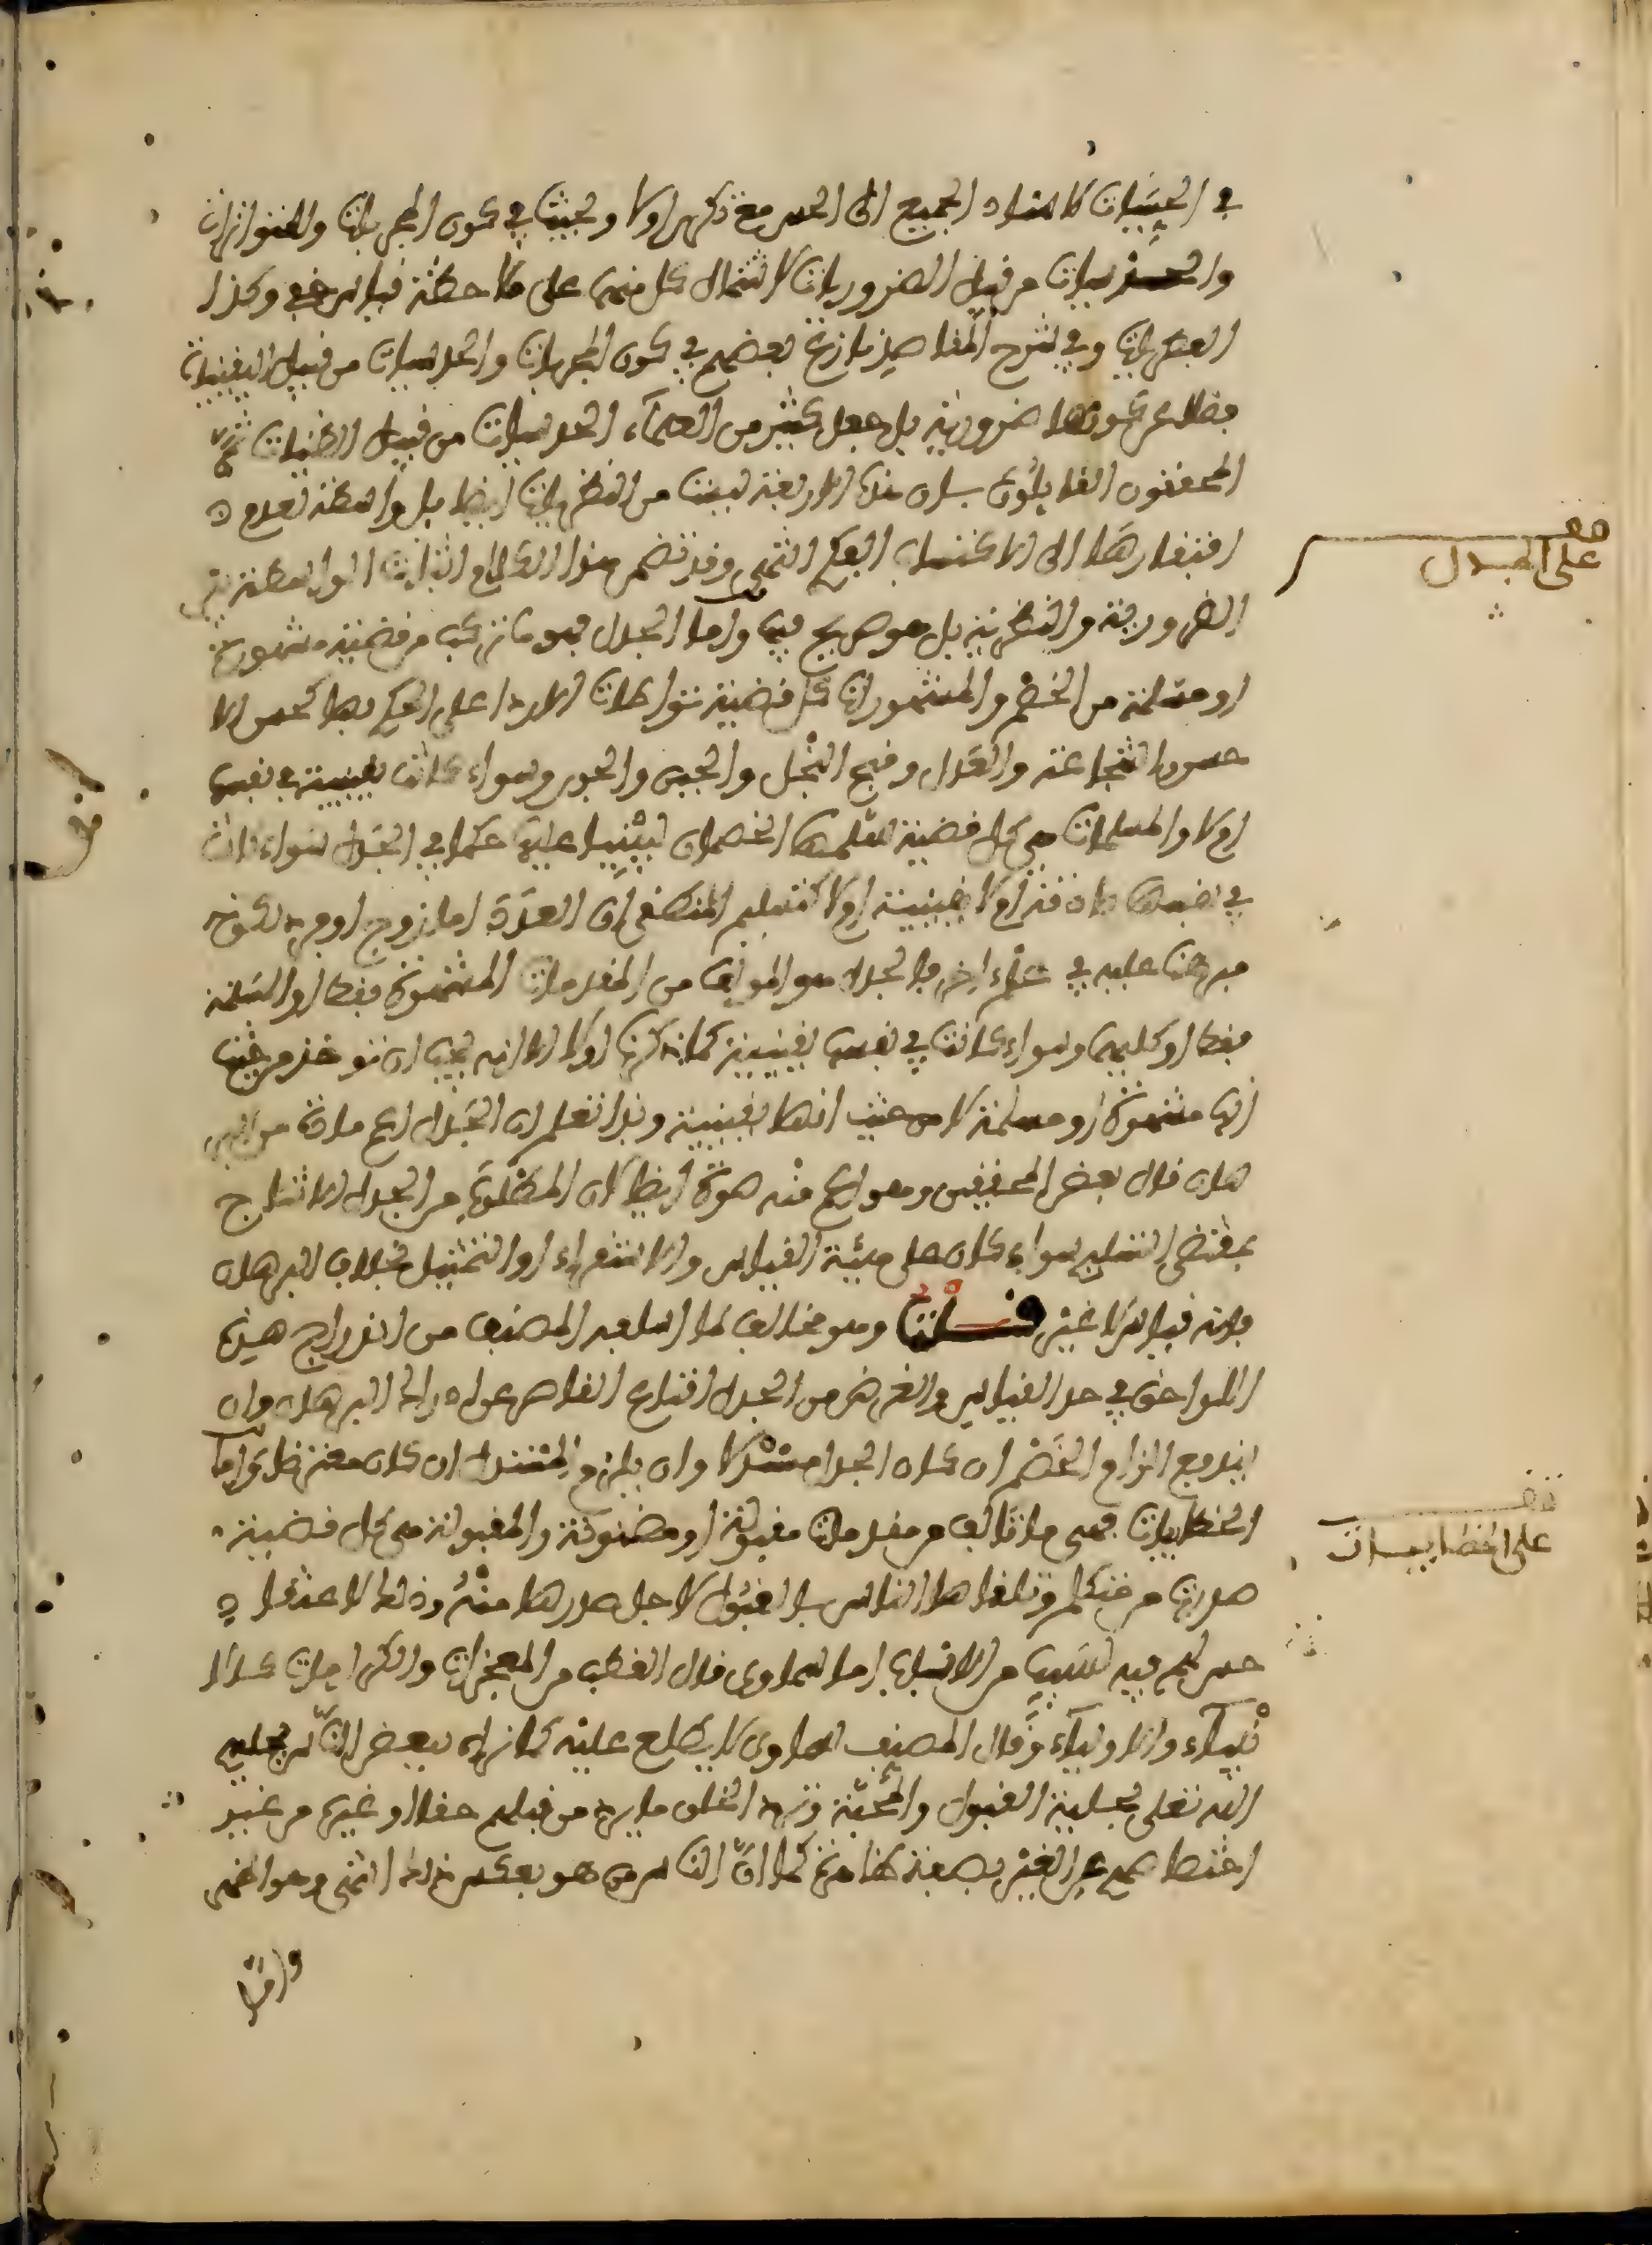 في الحسيات لاستناد الجميع الى الحس مع ذكرها اولا وبحث في كون المجربات والمتواترات
والحدسيات من قبيل الضروريات لاشتمال كل منها على ملاحظة قياس خفي وكذا
الفطريات وفي شرح المقاصد نازع بعضهم في كون المجربات والحدسيات من قبيل اليقينيات
فضلا عن كونها ضرورية بل جعل كثير من العلماء الحدسيات من قبيل الظنيات ثم
المحققون القائلون بان هذه الاربعة ليست من النظريات ايضا بل واسطة لعدم
افتقارها الى الاكتساب الفكري انتهى وقد تضمن هذا الكلام اثبات الواسطة بين
الضرورية والنظرية بل هو صريح فيها واما الجدل فهو ما تركب من قضية مشهورة
او مسلمة من الخصم والمشهورات كل قضية تواطات الاراء على الحكم بها كحسن الا
حسان والشجاعة والعدل وقبح البخل والجبن والجور وسواء كانت يقينية في نفسها
ام لا والمسلمات هي كل قضية تسلمها الخصمان ليبنيا عليها حكما في الجدل سواء كانت
في نفسها صادقة ام لا يقينية ام لا كتسليم المنطقي ان العدد اما زوج او فرد لكونه
مبرهنا عليه في علم اخر فالجدل هو المؤلف من المقدمات المشهورة فقط او المسلمة
فقط او كليهما وسواء كانت في نفسها يقينية كما ذكرنا اولا الا انه يجب ان تؤخذ من حيث
انها مشهورة او مسلمة لا من حيث انها يقينية وبذا تعلم ان الجدل اعم مادة من البر
هان قال بعض المحققين وهو اعم منه صورة ايضا لان المطلوب من الجدل الانتاج
بمقتضى التسليم سواء كان على هيئة القياس والاستقراء او التمثيل بخلاف البرهان
فانه قياس لا غير قلت وهو مخالف لما اسلفه المصنف من اندراج هذه
اللواحق في حد القياس والغرض من الجدل اقناع القاصر عن ادراك البرهان وان
يندفع الزام الخصم ان كان الجدل مستدلا وان يلزم المستدل ان كان معترضا واما
الخطابيات فهي ما تالف من مقدمات مقبولة او مظنونة والمقبولة هي كل قضية
صدرت من متكلم وتلقاها الناس بالقبول لاجل صدرها منه وذلك لاعتقاد
حسن لهم فيه لسبب من الاسباب اما سماوي قال القطب من المعجزات والكرامات كالا
نبياء والاولياء وقال المصنف سماوي لا يطلع عليه كما نراه ببعض الناس يحليه
الله تعلى بحلية القبول والمحبة وترى الخلق ما يرد من قبلهم حقا او غيره من غير
اختصاصهم عن الغير بصفة ظاهرة كما ان الناس من هو بعكس ذلك انتهى وهو اخص
واما
على الجدل
على الخطابيات